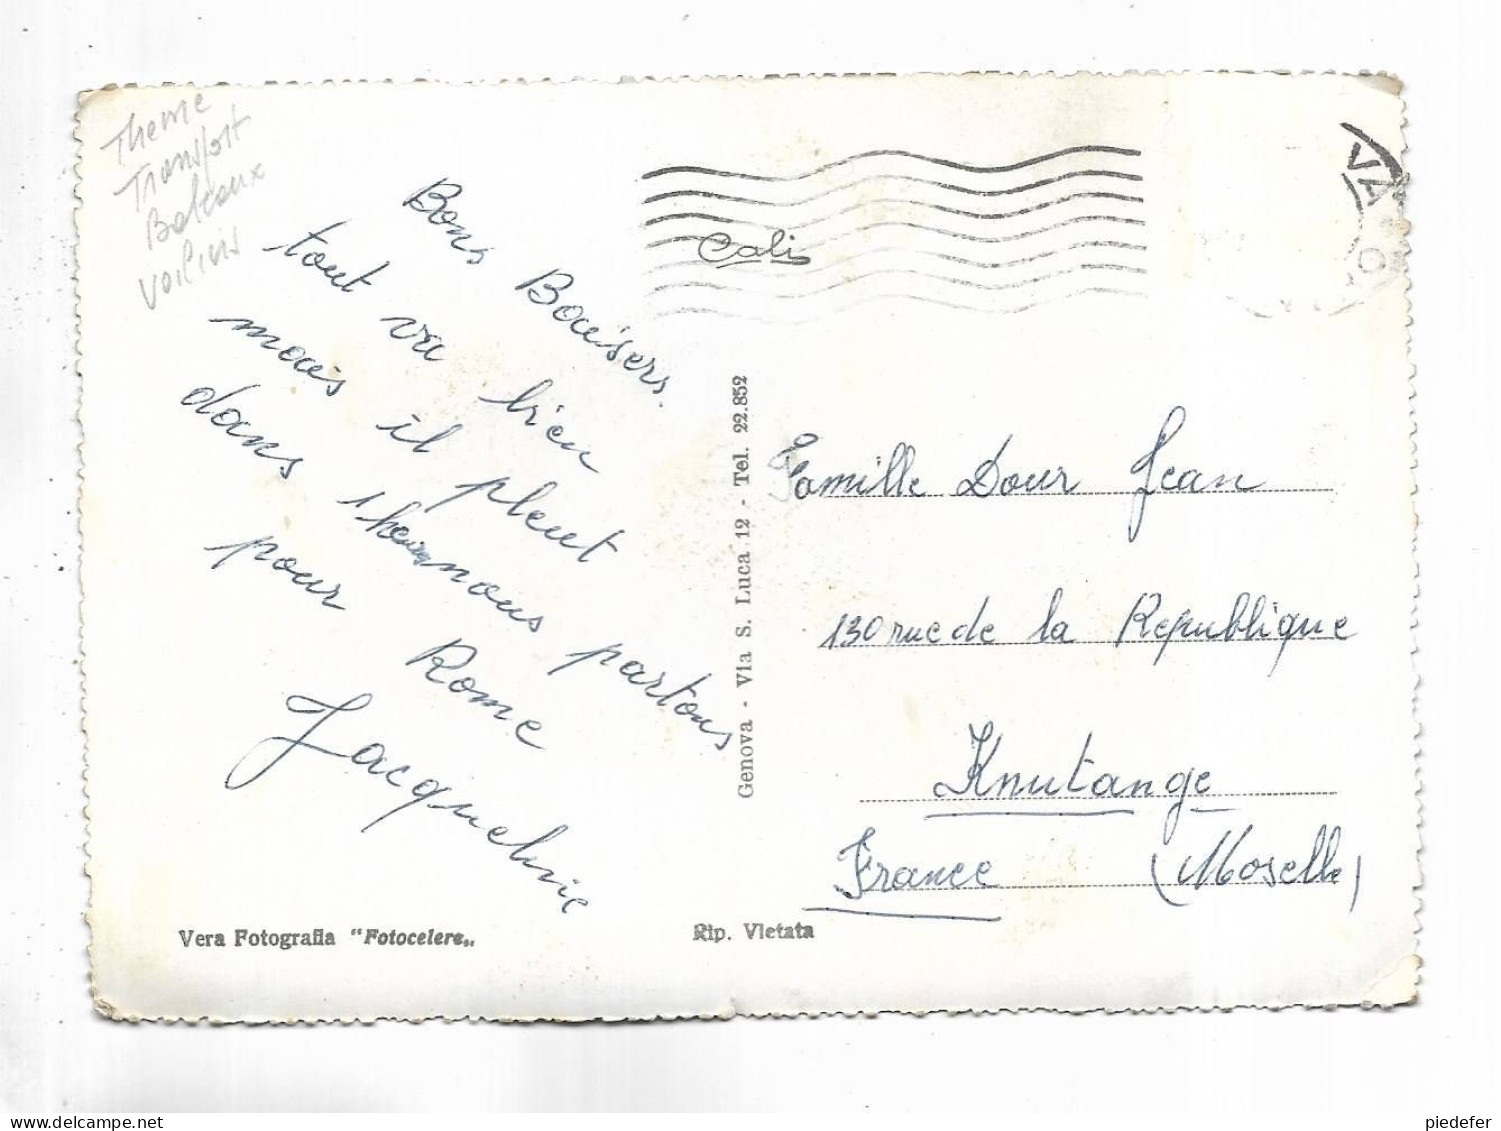 Theme
Transport
Bateaux
voiliers
Bons Baisers.
tout va bien
mais il pleut
dans 1 heure nous partons
pour Rome
Jacqueline
Cali
VA
O
Genova - Via S. Luca 12 - Tel. 22.852
Famille Dour Jean
130 rue de la Republique
Knutange
France (Moselle)
Vera Fotografia "Fotocelere„
Rip. Vietata
piedefer